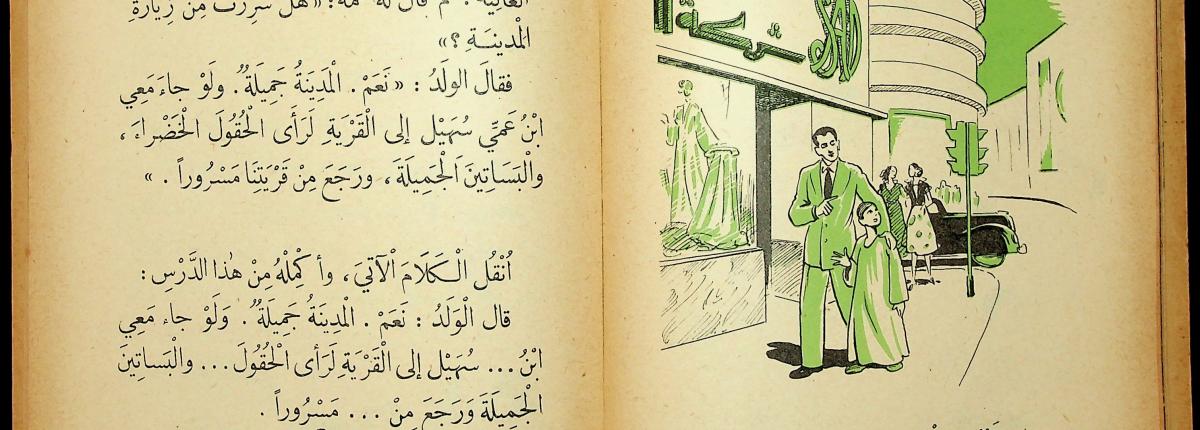 العالية . ثم قال له عمه : « هَلْ سُرِرْتَ مِنْ زِيَارَةِ
الْمَدِينَـةِ ؟ »
فقالَ الوَلَدُ : « نَعَمْ . الْمَدِينَةُ جَمِيلَةٌ . ولَوْ جاءَ مَعِي
ابْنُ عَمِّي سُهَيْل إلى الْقَرْيَةِ لَرَأى الْحُقُولَ الْخَضْراءَ ،
والْبَسَاتِينَ اَلْجَمِيلَةَ ، ورَجَعَ مِنْ قَرْيَتِنَا مَسْرُوراً . »
اُنْقُل الْـكَلَامَ اَلْآتِيَ ، وأ كْمِلْهُ مِنْ هٰذا الدَّرْسِ :
قال الْوَلَدُ : نَعَمْ . الْمَدِينَةُ جَمِيلَةٌ . وَلَوْ جاء مَعِي
ابْنُ ... سُهَيْل إلى الْقَرْيَةِ لَرَأى الْحُقُولَ ... والْبَساتِينَ
الْجَمِيلَةَ وَرَجَعَ مِنْ ... مَسْرُوراً .
شركة